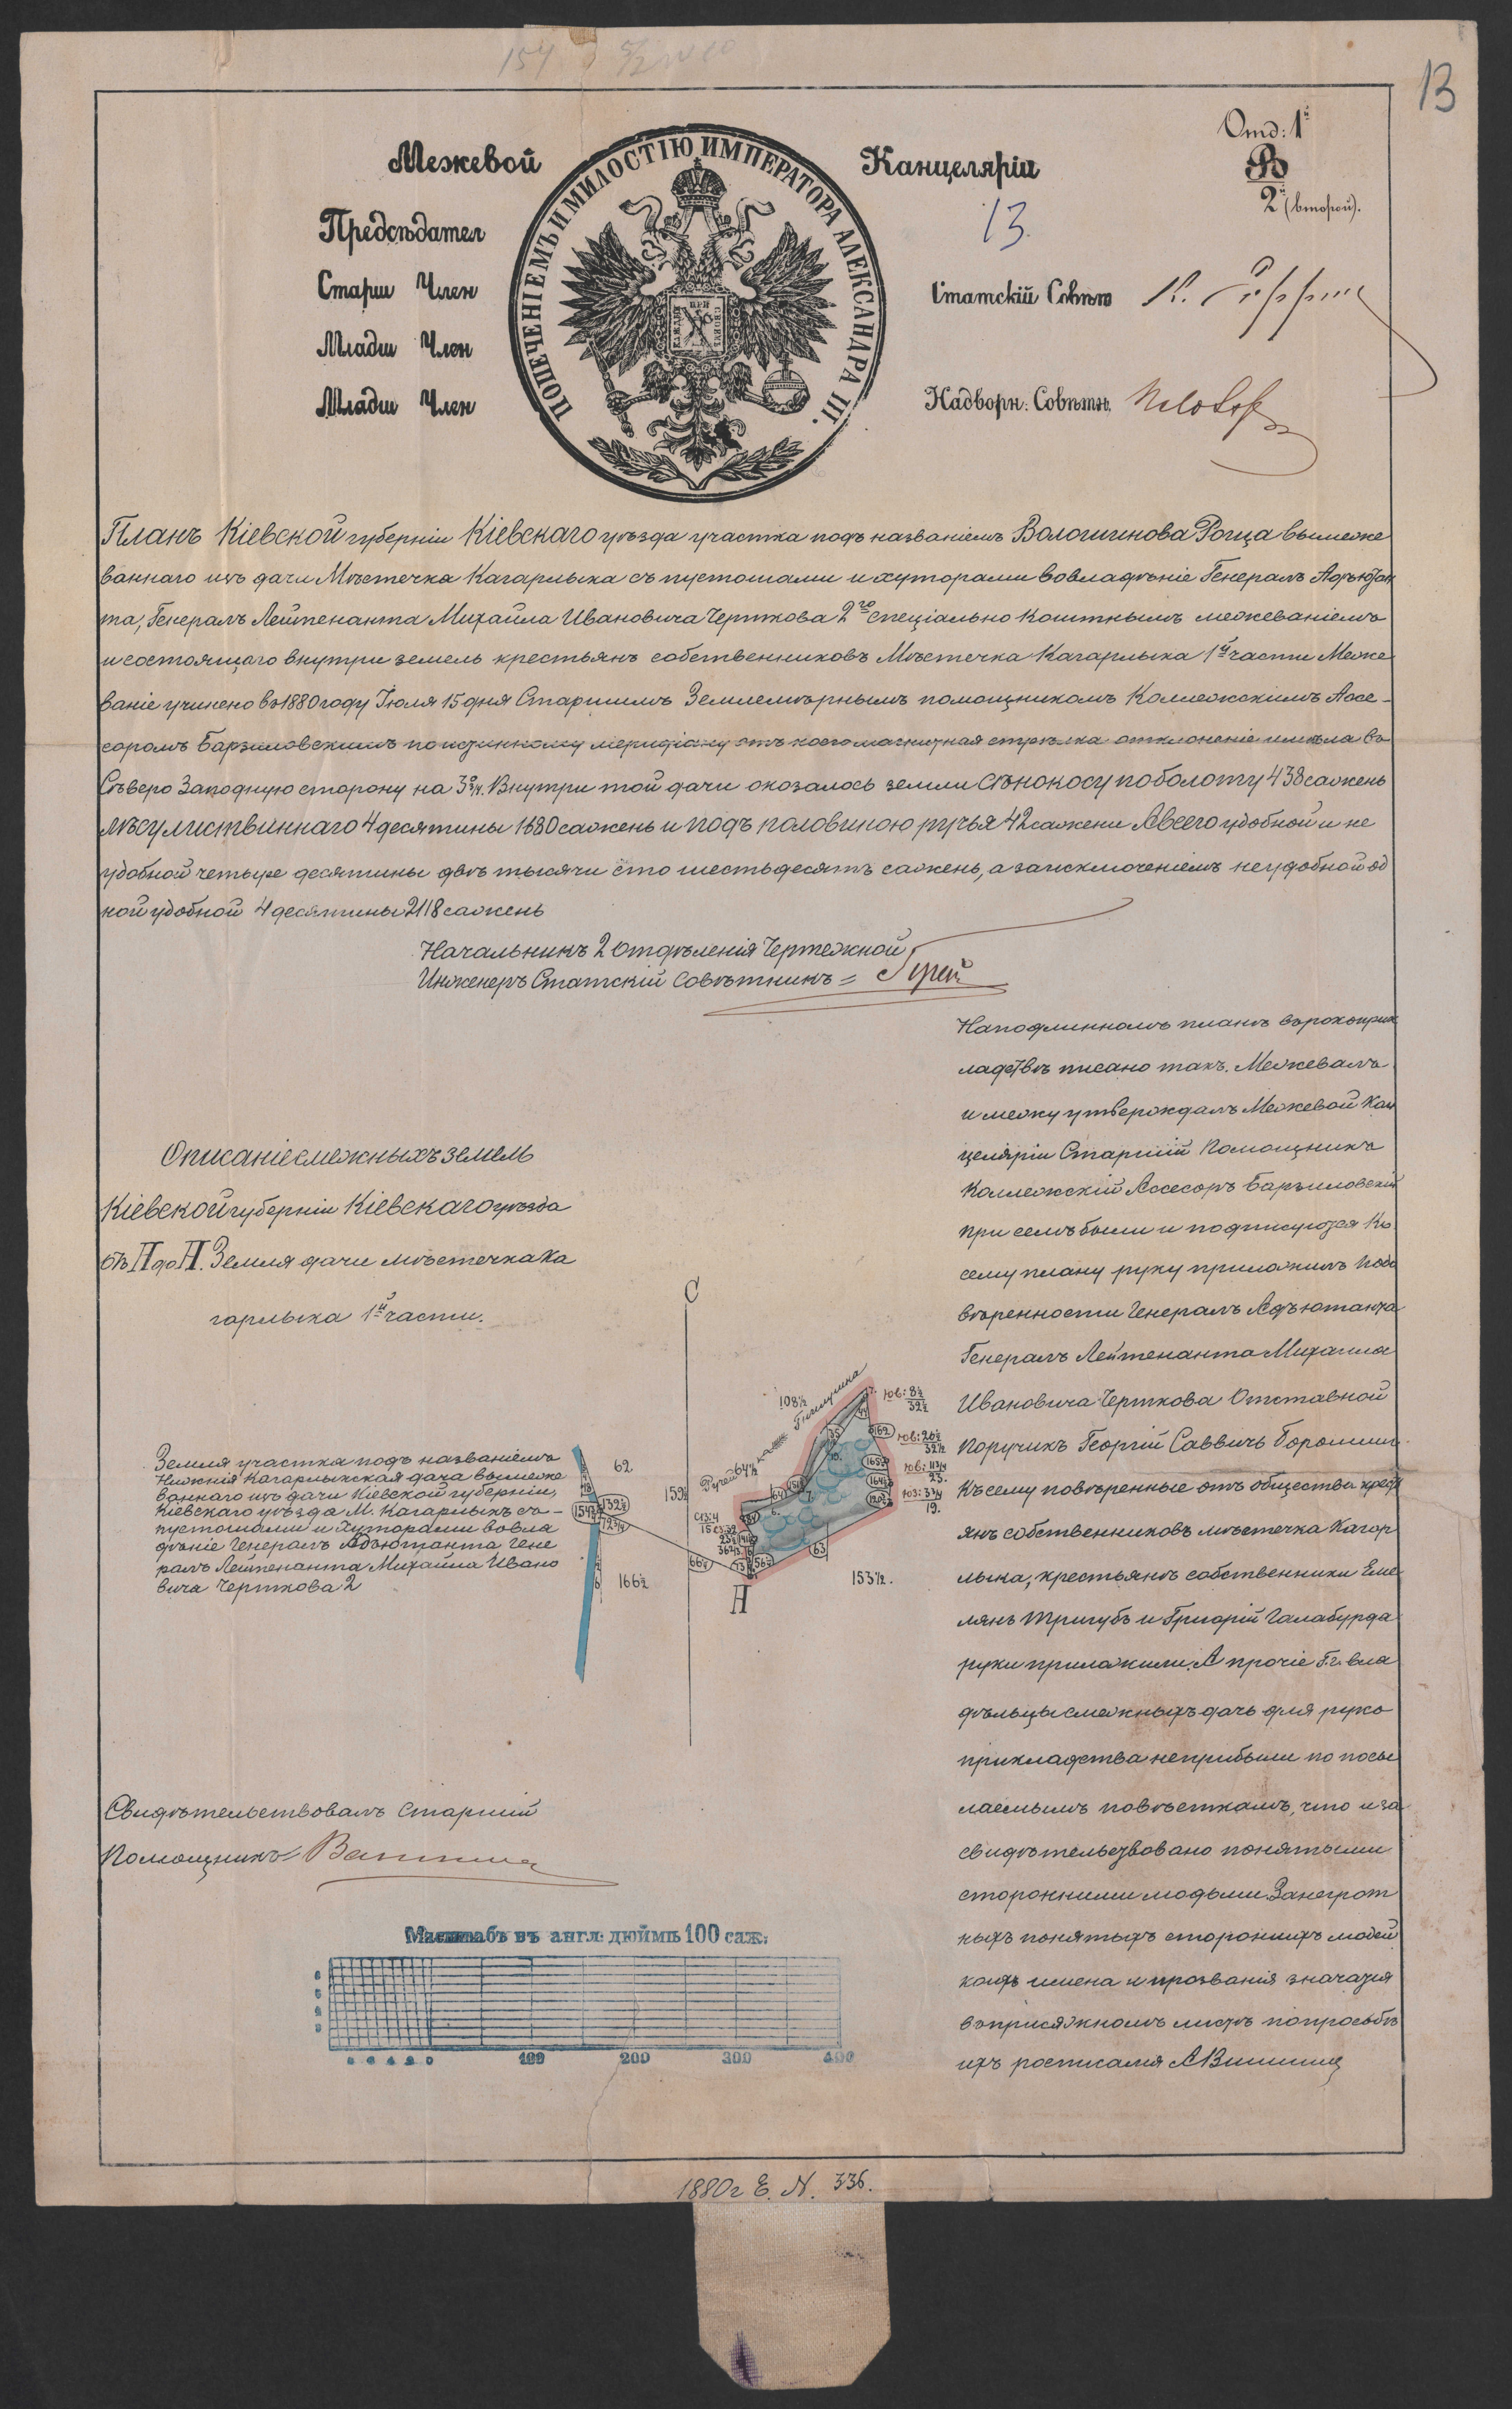 13
Отд: 1й
В
2й (второй).
Межевой Канцеляріи
ПОПЕЧЕНІЕМЪ И МИЛОСТІЮ ИМПЕРАТОРА АЛЕКСАНДРА III.
13.
Предсѣдател
Старш Член Статскій Совѣтн
Младш Член
Младш Член Надворн: Совѣтн.
Планъ Кіевской губерніи Кіевскаго уѣзда участка подъ названіемъ Волошинова Роща вымеже
ваннаго изъ дачи Мѣстечка Кагарлыка съ пустошами и хуторами вовладѣніе Генералъ Адъютан
та, Генералъ Лейтенанта Михаила Ивановича Черткова 2го спеціально Коштнымъ межеваніемъ
и состоящаго внутри земель крестьянъ собственниковъ Мѣстечка Кагарлыка 1й части Меже
ваніе учинено въ 1880 году Іюля 15 дня Старшимъ Землемѣрнымъ помощникомъ Коллежскимъ Ассе-
соромъ Барзиловскимъ по истинному меридіану отъ коего магнитная стрѣлка отклоненіе имѣла въ
Сѣверо Западную сторону на 3¾°. Внутри той дачи оказалось земли Сѣнокосу по болоту 438 сажень
лѣсу лиственнаго 4 десятины 1680 сажень и подъ половиною ручья 42 сажени Авсего удобной и не
удобной четыре десятины двѣ тысячи сто шестьдесятъ сажень, а заисключеніемъ неудобной од
ной удобной 4 десятины 2118 сажень
Начальникъ 2 Отдѣленія Чертежной
Инженеръ Статскій Совѣтникъ =
Наподлинномъ планѣ върукоприк
ладствѣ писано такъ. Межевалъ
и межу утверждалъ Межевой Кан
целяріи Старшій Помощникъ
Коллежскій Ассесоръ Барзиловскій
при семъ были и подписуются Ко
сему плану руку приложилъ Подо
вѣренности Генералъ Адъютанта
Генералъ Лейтенанта Михаила
Ивановича Черткова Отставной
поручикъ Георгій Саввичъ
Къ сему повѣренные отъ общества крест
янъ собственниковъ мѣстечка Кагар
лыка, крестьянъ собственники Еме
льянъ Тригубъ и Григорій Галабурда
руки приложили. А прочіе Г.г. вла
дѣльцы смежныхъ дачъ для руко
прикладства неприбыли по посы
лаемымъ повѣсткамъ, что и за
свидѣтельствовано понятыми
сторонними людьми. Занеграмот
ныхъ понятыхъ стороннихъ людей
коихъ имена и прозванія значатся
въприсяжномъ листѣ попросьбѣ
ихъ росписался
Описаніе смежныхъ земель
Кіевской губерніи Кіевскаго уѣзда
отъ А до А. Земля дачи мѣстечка Ка
гарлыка 1й части.
Земля участка подъ названіемъ
Нижнія Кагарлыкская дача вымеже
ваннаго изъ дачи Кіевской губерніи,
Кіевскаго уѣзда М. Кагарлыкъ съ-
пустошами и Хуторами вовла
дѣніе Генералъ Адъютанта Гене
ралъ Лейтенанта Михаила Ивано
вича Черткова 2
С
108½
Ручей
64½
62
159½
132½
154½
12¾
166½
66½
63
153½.
А
ЮВ: 8½
32½
ЮВ: 26½
32½
ЮВ: 11¾
23.
ЮЗ: 3¾
19.
Свидѣтельствовалъ Старшій
Помощникъ
Масштабъ въ англ: дюймѣ 100 саж.
100 200 300 400
1880 г Е. N. 336.